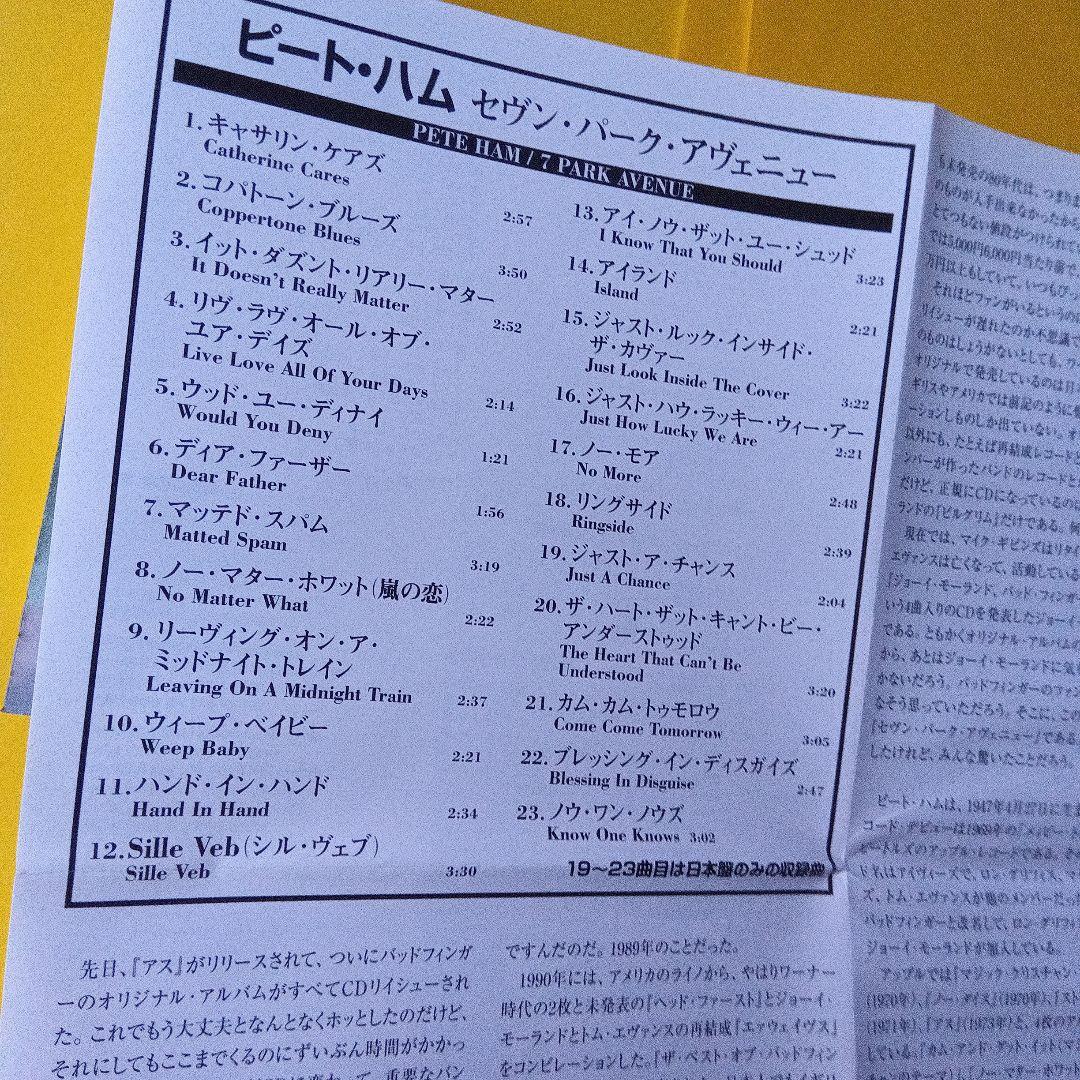 ピート・ハム セヴン・パーク・アヴェニュー
PETE HAM / 7 PARK AVENUE
1. キャサリン・ケアズ
Catherine Cares
2:57
2. コパトーン・ブルーズ
Coppertone Blues
3:50
3. イット・ダズント・リアリー・マター
It Doesn't Really Matter
2:52
4. リヴ・ラヴ・オール・オブ・
ユア・デイズ
Live Love All Of Your Days
2:14
5. ウッド・ユー・ディナイ
Would You Deny
1:21
6. ディア・ファーザー
Dear Father
1:56
7. マッテド・スパム
Matted Spam
3:19
8. ノー・マター・ホワット(嵐の恋)
No Matter What
2:22
9. リーヴィング・オン・ア・
ミッドナイト・トレイン
Leaving On A Midnight Train
2:37
10. ウィープ・ベイビー
Weep Baby
2:21
11. ハンド・イン・ハンド
Hand In Hand
2:34
12. Sille Veb(シル・ヴェブ)
Sille Veb
3:30
13. アイ・ノウ・ザット・ユー・シュッド
I Know That You Should
3:23
14. アイランド
Island
2:21
15. ジャスト・ルック・インサイド・
ザ・カヴァー
Just Look Inside The Cover
3:22
16. ジャスト・ハウ・ラッキー・ウィー・アー
Just How Lucky We Are
2:21
17. ノー・モア
No More
2:48
18. リングサイド
Ringside
2:39
19. ジャスト・ア・チャンス
Just A Chance
2:04
20. ザ・ハート・ザット・キャント・ビー・
アンダーストゥッド
The Heart That Can't Be
Understood
3:20
21. カム・カム・トゥモロウ
Come Come Tomorrow
3:05
22. ブレッシング・イン・ディスガイズ
Blessing In Disguise
2:47
23. ノウ・ワン・ノウズ
Know One Knows 3:02
19〜23曲目は日本盤のみの収録曲
先日、『アス』がリリースされて、ついにバッドフィンガ
ーのオリジナル・アルバムがすべてCDリイシューされ
た。これでもう大丈夫となんとなくホッとしたのだけど、
それにしてもここまでくるのにずいぶん時間がかかっ
ですんだのだ。1989年のことだった。
1990年には、アメリカのライノから、やはりワーナー
時代の2枚と未発表の『ヘッド・ファースト』とジョーイ・
モーランドとトム・エヴァンスの再結成『エァウェイヴス』
をコンピレーションした。『ザ・ベスト・オブ・バッドフィン
のものが入手出来なかったから
とてつもない値段がつけられて
では5,000円6,000円当たり前で、
万円以上もしていて、いつもびっ
それほどファンがいるというの
リイシューが遅れたのか不思議で
のものはしょうがないとしても、ワー
オリジナルで発売しているのは日
ギリスやアメリカでは前記のように
ーションしものしか出ていない。オ
以外にも、たとえば再結成レコードと
ンバーが作ったバンドのレコードと
だけど、正規にCDになっているのは
ランドの『ピルグリム』だけである。何
現在では、マイク・ギビンズはリタイ
エヴァンスは亡くなって、活動している
『ジョーイ・モーランド、バッド・フィンガー
いう4曲入りのCDを発表したジョーイ・
である。ともかくオリジナル・アルバムの
から、あとはジョーイ・モーランドに気
かないだろう。バッドフィンガーのファン
なそう思っていただろう。そこに、この
『セヴン・パーク・アヴェニュー』である。
したけれど、みんな驚いたことだろう。
ピート・ハムは、1947年4月27日に
コード・デビューは1969年の
ートルズのアップル・レコードである。その
ド名はアイヴィーズで、ロン・グリフィス、マ
ズ、トム・エヴァンスが他のメンバーだった
バッドフィンガーと改名して、ロン・グリフ
ジョーイ・モーランドが加入している。
アップルでは『マジック・クリスチャン・
(1970年)、『ノー・ダイス』(1970年)、『スト
(1971年)、『アス』(1973年)と、4枚のア
している。『カム・アンド・ゲット・イット(マジ
チャンのテーマ)』、『ノー・マター・ホワット